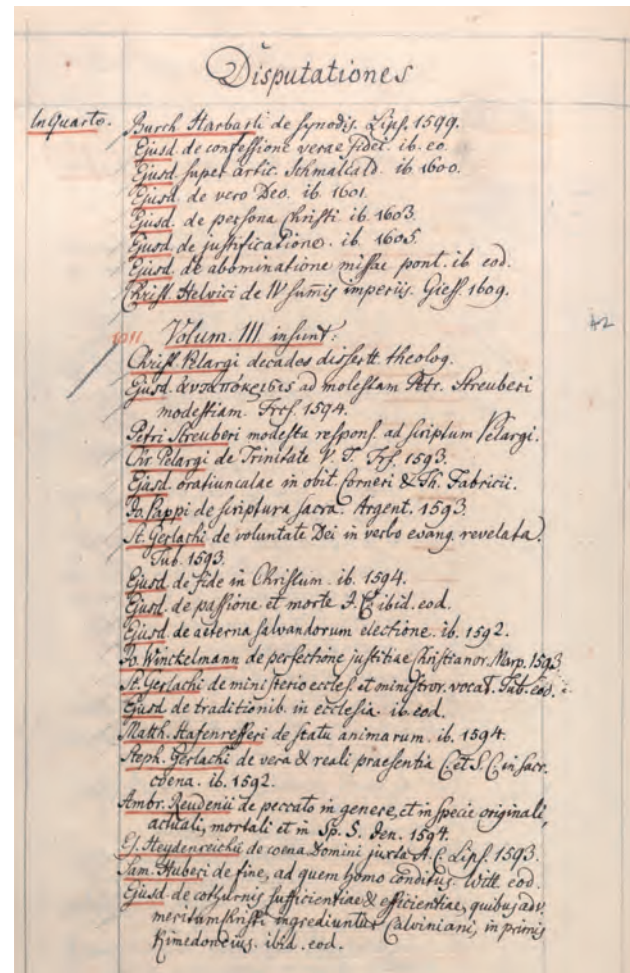 Disputationes
In Quarto.
Burch. Harbarti de synodis. Lips. 1599.
Ejusd. de confessione verae fidei. ib. eo.
Ejusd. super artic. Schmalcald. ib. 1600.
Ejusd. de vero Deo. ib. 1601.
Ejusd. de persona Christi ib. 1603.
Ejusd. de justificatione. ib. 1605.
Ejusd. de abominatione missae pont. ib. eod.
Christ. Helvici de IV summis imperiis. Giess. 1609.
Volum. III insunt:
Christ. Pelargi decades dissertt. theolog.
Ejusd. ad molestam Petr. Streuberi
modestiam. Frcf. 1594.
Petri Streuberi modesta respons. ad scriptum Pelargi.
Chr. Pelargi de Trinitate V. T. Frf. 1593.
Ejusd. oratiunculae in obit. Corneri & Th. Fabricii.
Jo. Pappi de scriptura sacra. Argent. 1593.
St. Gerlachi de voluntate Dei in verbo evang. revelata.
Tub. 1593.
Ejusd. de fide in Christum. ib. 1594.
Ejusd. de passione et morte J. C. ibid. eod.
Ejusd. de aeterna salvandorum electione. ib. 1592.
Jo. Winckelmann de perfectione justitiae Christianor. Marp. 1593
St. Gerlachi de ministerio eccles. et ministror. vocat. Tub. eod.
Ejusd. de traditionib. in ecclesia. ib. eod.
Matth. Hafenrefferi de statu animarum. ib. 1594.
Steph. Gerlachi de vera & reali praesentia C. et S. C. in sacr.
coena. ib. 1592.
Ambr. Reudenii de peccato in genere, et in specie originali,
actuali, mortali et in Sp. S. Jen. 1594.
Heydenreichii de coena Domini juxta A. C. Lips. 1593.
Sam. Huberi de fine, ad quem homo conditus. Witt. eod.
Ejusd. de cothurnis sufficientiae & efficientiae, quibus adv.
meritum Kristi ingrediuntur Calviniani, in primis
Kimedoncius. ibid. eod.